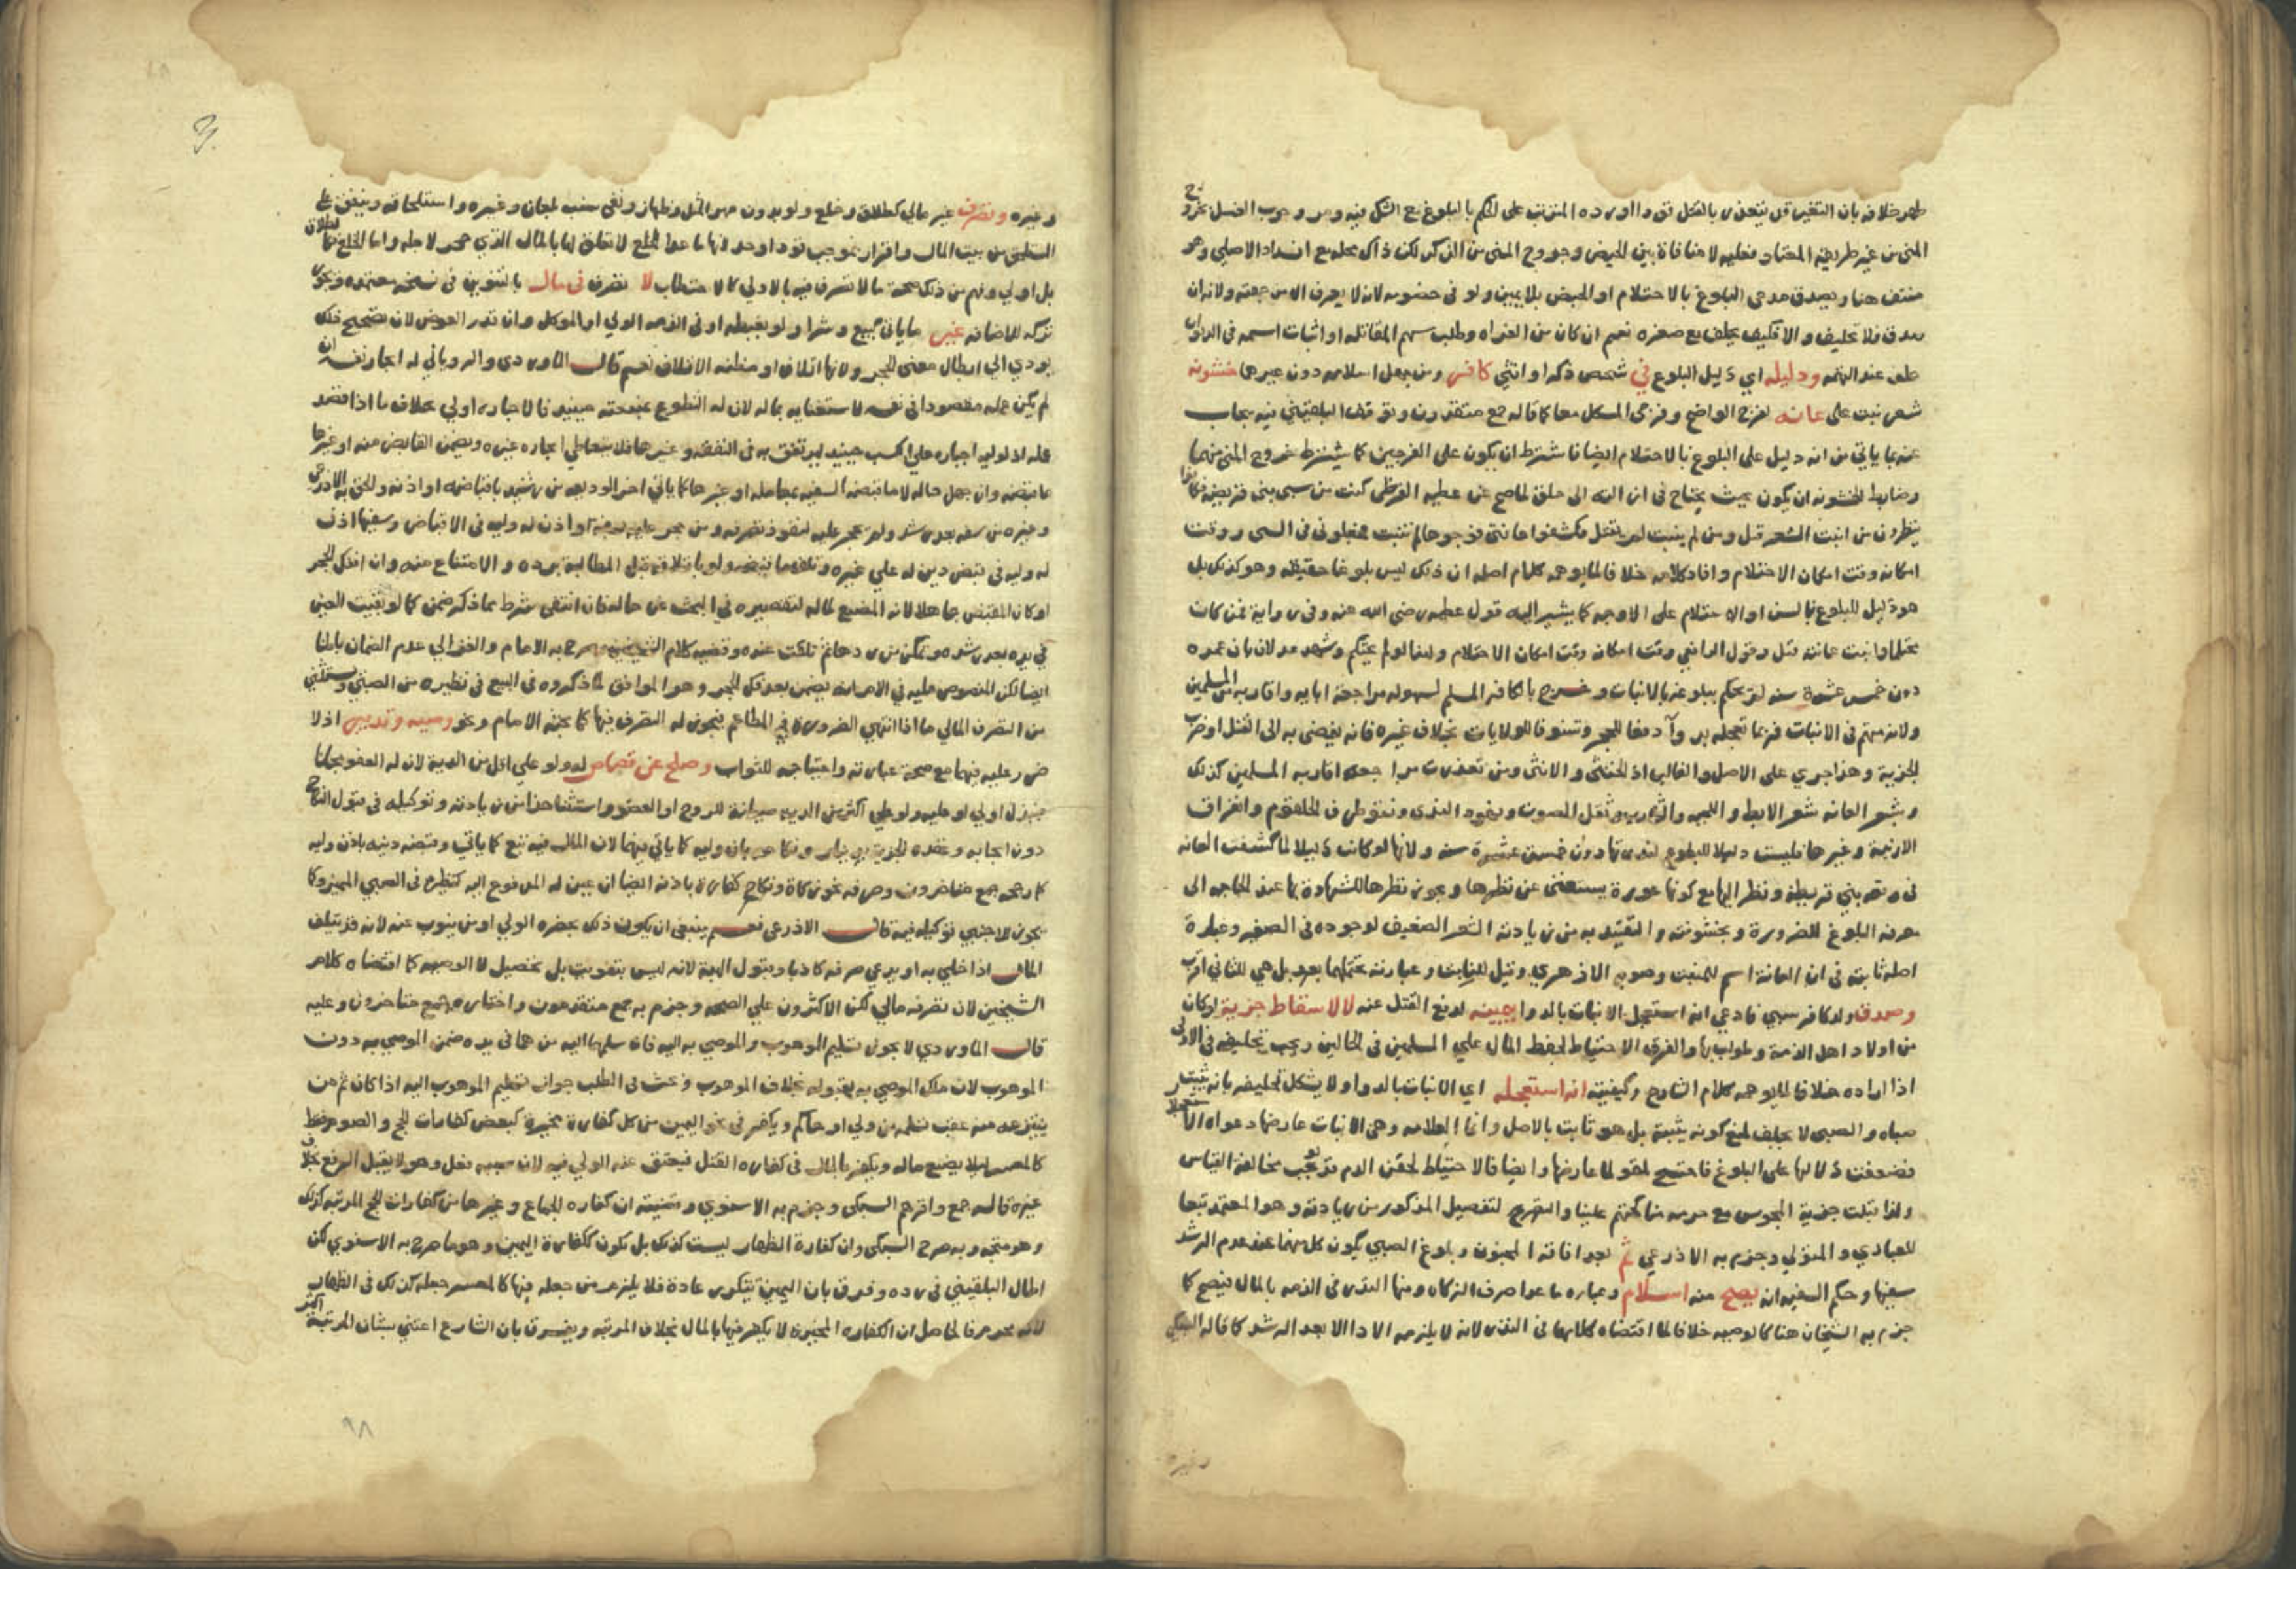 ظهر خلافه بان التغير قد يتعذر بالقتل المترتب على الحكم بالبلوغ مع الشك فيه ومر وجوب الغسل بخروج
المني من غير طريقه المعتاد فعليه لا منافاة بين الحيض وخروج المني من الذكر لكن ذاك محله مع انسداد الاصلي وهو
منتف هنا ويصدق مدعي البلوغ بالاحتلام او الحيض بلا يمين ولو في خصومه لانه لا يعرف الا من جهته ولانه ان
صدق فلا تحليف والا فكيف يحلف مع صغره نعم ان كان من الغزاه وطلب سهم المقاتله او اثبات اسمه في الديوان
حلف عند التهمه ودليله اي دليل البلوغ في شخص ذكرا او انثي كافر ومن جهل اسلامه دون غيرهما خشونه
شعر نبت على عانه لفرج الواضح وفرجي المشكل معا كما قاله جمع متقدمون وتوقف البلقيني فيه يجاب
عنه بما ياتي من انه دليل على البلوغ بالاحتلام ايضا فاشترط ان يكون على الفرجين كما يشترط خروج المني منهما
وضابط الخشونه ان يكون بحيث يحتاج في ازالته الى حلق لما صح عن عطيه القرظي كنت من سبي بني قريظه فكانوا
ينظرون من انبت الشعر قتل ومن لم ينبت لم يقتل فكشفوا عانتي فوجدوها لم تنبت فجعلوني في السبي ووقت
امكانه وقت امكان الاحتلام وافاد كلامه خلافا لما يوهمه كلام اصله ان ذلك ليس بلوغا حقيقه وهو كذلك بل
هو دليل للبلوغ بالسن او الاحتلام على الاوجه كما يشير اليه قول عطيه رضي الله عنه وفي رواية فمن كان
محتلما او نبت عانته قتل وقول الرافعي وقت امكانه وقت امكان الاحتلام ولهذا لو لم يحتلم وشهد عدلان بان عمره
دون خمس عشرة سنه لم يحكم ببلوغه بالانبات وخرج بالكافر المسلم لسهوله مراجعة ابايه واقاربه المسلمين
ولانه متهم في الانبات فربما تعجله بدوآ دفعا للحجر وتشوفا للولايات بخلاف غيره فانه يفضي به الى القتل او ضرب
الجزية وهذا جري على الاصل والغالب اذ الخنثى والانثى ومن تعذرت مراجعة اقاربه المسلمين كذلك
وشعر العانه شعر الابط واللحيه والشارب وثقل الصوت ونهود الثدي ونتو طرف الحلقوم وانفراق
الارنبة وغيرها فليست دليلا للبلوغ لندرتها دون خمس عشرة سنه ولانها لو كانت دليلا لما كشفت العانه
في وقعه بني قريظة ونظر اليها مع كونها عورة يستغنى عن نظرها ويجوز نظرها للشهادة بها عند الحاجه الى
معرفه البلوغ للضرورة وبخشونته والتقييد به من زيادته الشعر الضعيف لوجوده في الصغير وعبارة
اصله ثابته في ان العانة اسم للمنبت وصوبه الازهري وقيل للنابت وعبارته تحتملهما بعده بل هي للثاني اقرب
وصدق ولد كافر سبي فادعي انه استعجل الانبات بالدوا بيمينه لدفع القتل عنه لا لاسقاط جزية لو كان
من اولاد اهل الذمة وطولب بها والفرق الاحتياط لحفظ المال على المسلمين في الحالين ويجب تحليفه في الاولى
اذا اراده خلافا لما يوهمه كلام الشارح وكيفيته انه استعجله اي الانبات بالدوا ولا يشكل تحليفه بانه يثبت
صباه والصبي لا يحلف لمنع كونه يثبته بل هو ثابت بالاصل وانما العلامه وهي الانبات عارضها دعواه الاستعجال
فضعفت دلالتها على البلوغ فاحتيج لمقو لما عارضها وايضا فالاحتياط لحقن الدم قد يوجب مخالفة القياس
ولذا قبلت جزية المجوس مع حرمه مناكحتهم علينا والتصريح لتفصيل المذكور من زيادته وهو المعتمد تبعا
للعبادي والمتولي وجزم به الاذرعي ثم بعد افاقة المجنون وبلوغ الصبي يكون كل منهما عند عدم الرشد
سفيها وحكم السفيه انه يصح منه اسلام وعباره ما عدا صرف الزكاه ومنها النذر في الذمه بالمال فيصح كما
جزم به الشيخان هنا كالوصيه خلافا لما اقتضاه كلامهما في النذر لانه لا يلزمه الادا الا بعد الرشد كما قاله السبكي
وغيره
وغيره وتصرف غير مالي كطلاق وخلع ولو بدون مهر المثل وظهار ونفي نسب بلعان وغيره واستلحاقه وينفق على
المستلحق من بيت المال واقرار بموجب قود او حد لانها ما عدا الخلع لا تعلق لها بالمال الذي حجر لاجله واما الخلع فكالطلاق
بل اولي وفهم من ذلك صحة ما لا تصرف فيه بالاولى كالاحتطاب لا تصرف في مال بالتنوين في نسخه معتمده ويجوز
تركه للاضافه غير ما ياتي كبيع وشرا ولو بغبطه او في الذمه الولي او الموكل وان قدر العوض لان تصحيح ذلك
يودي الى ابطال معنى الحجر ولانها اتلاف او مظنه الاتلاف نعم قال الماوردي والروياني له اجارة نفسه ان
لم يكن عمله مقصودا في نفسه لاستغنايه بماله لان له التطوع بمنفعته حينيذ فالاجاره اولى بخلاف ما اذا قصد
عمله اذ لوليه اجباره على الكسب حينيذ ليرتفق به في النفقه وغيرها فلا يتعاطى اجاره غيره ويضمن القابض منه او غيرها
ما قبضه وان جهل حاله لا ما قبضه السفيه بمعامله او غيرها كما ياتي اخر الوديعه من رشيد باقباضه او اذنه والحق به الاذرعي
وغيره من سفه بعد رشد ولم يحجر عليه لنفوذ تصرفه ومن حجر عليه لسفه او اذن له وليه في الاقباض وسفيها اذن
له وليه في قبض دين له على غيره وتلف ما قبضه ولو باتلافه قبل المطالبة برده والامتناع منه وان انفك الحجر
او كان المقبض جاهلا لانه المضيع لماله لتقصيره في البحث عن حاله فان انتفى شرط مما ذكر ضمن كما لو بقيت العين
في يده بعد رشده وتمكن من ردها ثم تلفت عنده وقضيه كلام الشيخين وصرح به الامام والغزالي عدم الضمان باطنا
ايضا لكن المنصوص عليه في الام انه يضمن بعد فك الحجر وهو الموافق لما ذكروه في البيع في نظيره من الصبي ويستثنى
من التصرف المالي ما اذا انتهي الضرورة في المطاعم فيجوز له التصرف فيها كما بحثه الامام ونحو وصيه وتدبير اذ لا
ضرر عليه فيهما مع صحة عبارته واحتياجه للثواب وصلح عن قصاص له ولو على اقل من الدية لان له العفو مجانا
فببدل اولى او عليه ولو على اكثر من الديه صيانة للروح او العضو واستثنا هذا من زيادته وتوكيله في قبول النكاح
دون ايجابه وعقده للجزية بدينار ونكاحه باذن وليه كما ياتي فيهما لان المال فيه تبع كما ياتي وقبضه دينه باذن وليه
كما رجحه جمع متاخرون وصرفه نحو زكاة ونكاح كفارة باذنه ايضا ان عين له المدفوع اليه كنظيره في الصبي المميز وكما
يجوز للاجنبي توكيله فيه قال الاذرعي نعم ينبغي ان يكون ذلك بحضره الولي او من ينوب عنه لانه قد يتلف
المال اذا خلي به او يدعي صرفه كاذبا وقبول الهبة لانه ليس بتفويت بل تحصيل لا الوصيه كما اقتضاه كلام
الشيخين لان تصرفه مالي لكن الاكثرون على الصحه وجزم به جمع متقدمون واختاره جمع متاخرون وعليه
قال الماوردي لا يجوز تسليم الموهوب والموصي به اليه فان سلمهما اليه من هما في يده ضمن الموصى به دون
الموهوب لان ملك الموصي به بقبوله بخلاف الموهوب وبحث في المطلب جواز تسليم الموهوب اليه اذا كان ثم من
ينتزعه منه عقب تسلمه من ولي او حاكم ويكفر في نحو اليمين من كل كفارة مخيرة كبعض كفارات الحج والصوم فقط
كالمعسر ليلا يضيع ماله ويكفر بالمال في كفاره القتل فيعتق عنه الولي فيه لان سببه فعل وهو لا يقبل الرفع بخلاف
غيره قاله جمع واقرهم السبكى وجزم به الاسنوي وقضيته ان كفاره الجماع وغيرها من كفارات الحج المرتبه كذلك
وهو متجه وبه صرح السبكى وان كفارة الظهار ليست كذلك بل تكون ككفارة اليمين وهو ما صرح به الاسنوي لكن
اطال البلقيني في رده وفرق بان اليمين تتكرر عادة فلا يلزم من جعله فيها كالمعسر جعله كذلك في الظهار
لانه محرم فالحاصل ان الكفاره المخيرة لا يكفر فيها بالمال بخلاف المرتبه ويفرق بان الشارع اعتني بشان المرتبة اكثر
٩٨